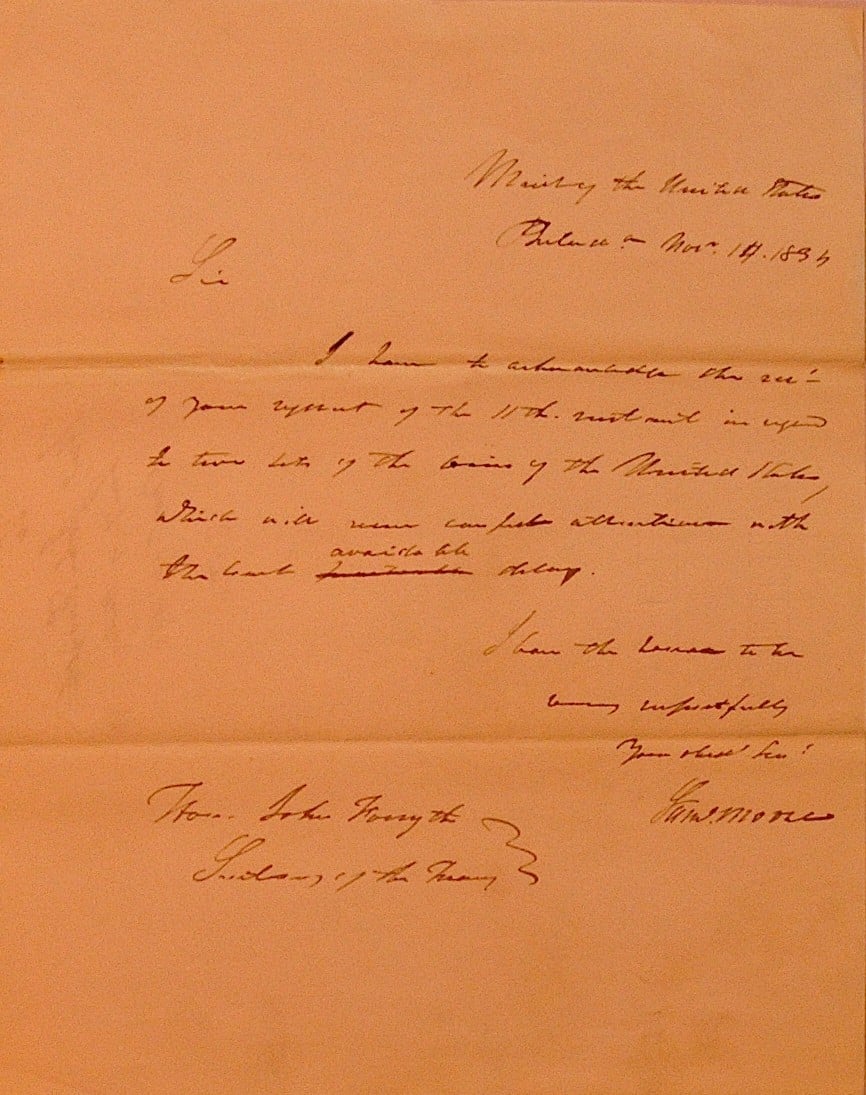 Mint of the United States
Philad a Novr. 14. 1834
Sir
I have to acknowledge the rect
of your request of the 11th. instant in regard
to two sets of the coins of the United States,
which will receive complete attention with
the least avoidable delay.
I have the honor to be
very respectfully
Your obedt Sert
Saml. Moore
Hon. John Forsyth
Secretary of the Treasury